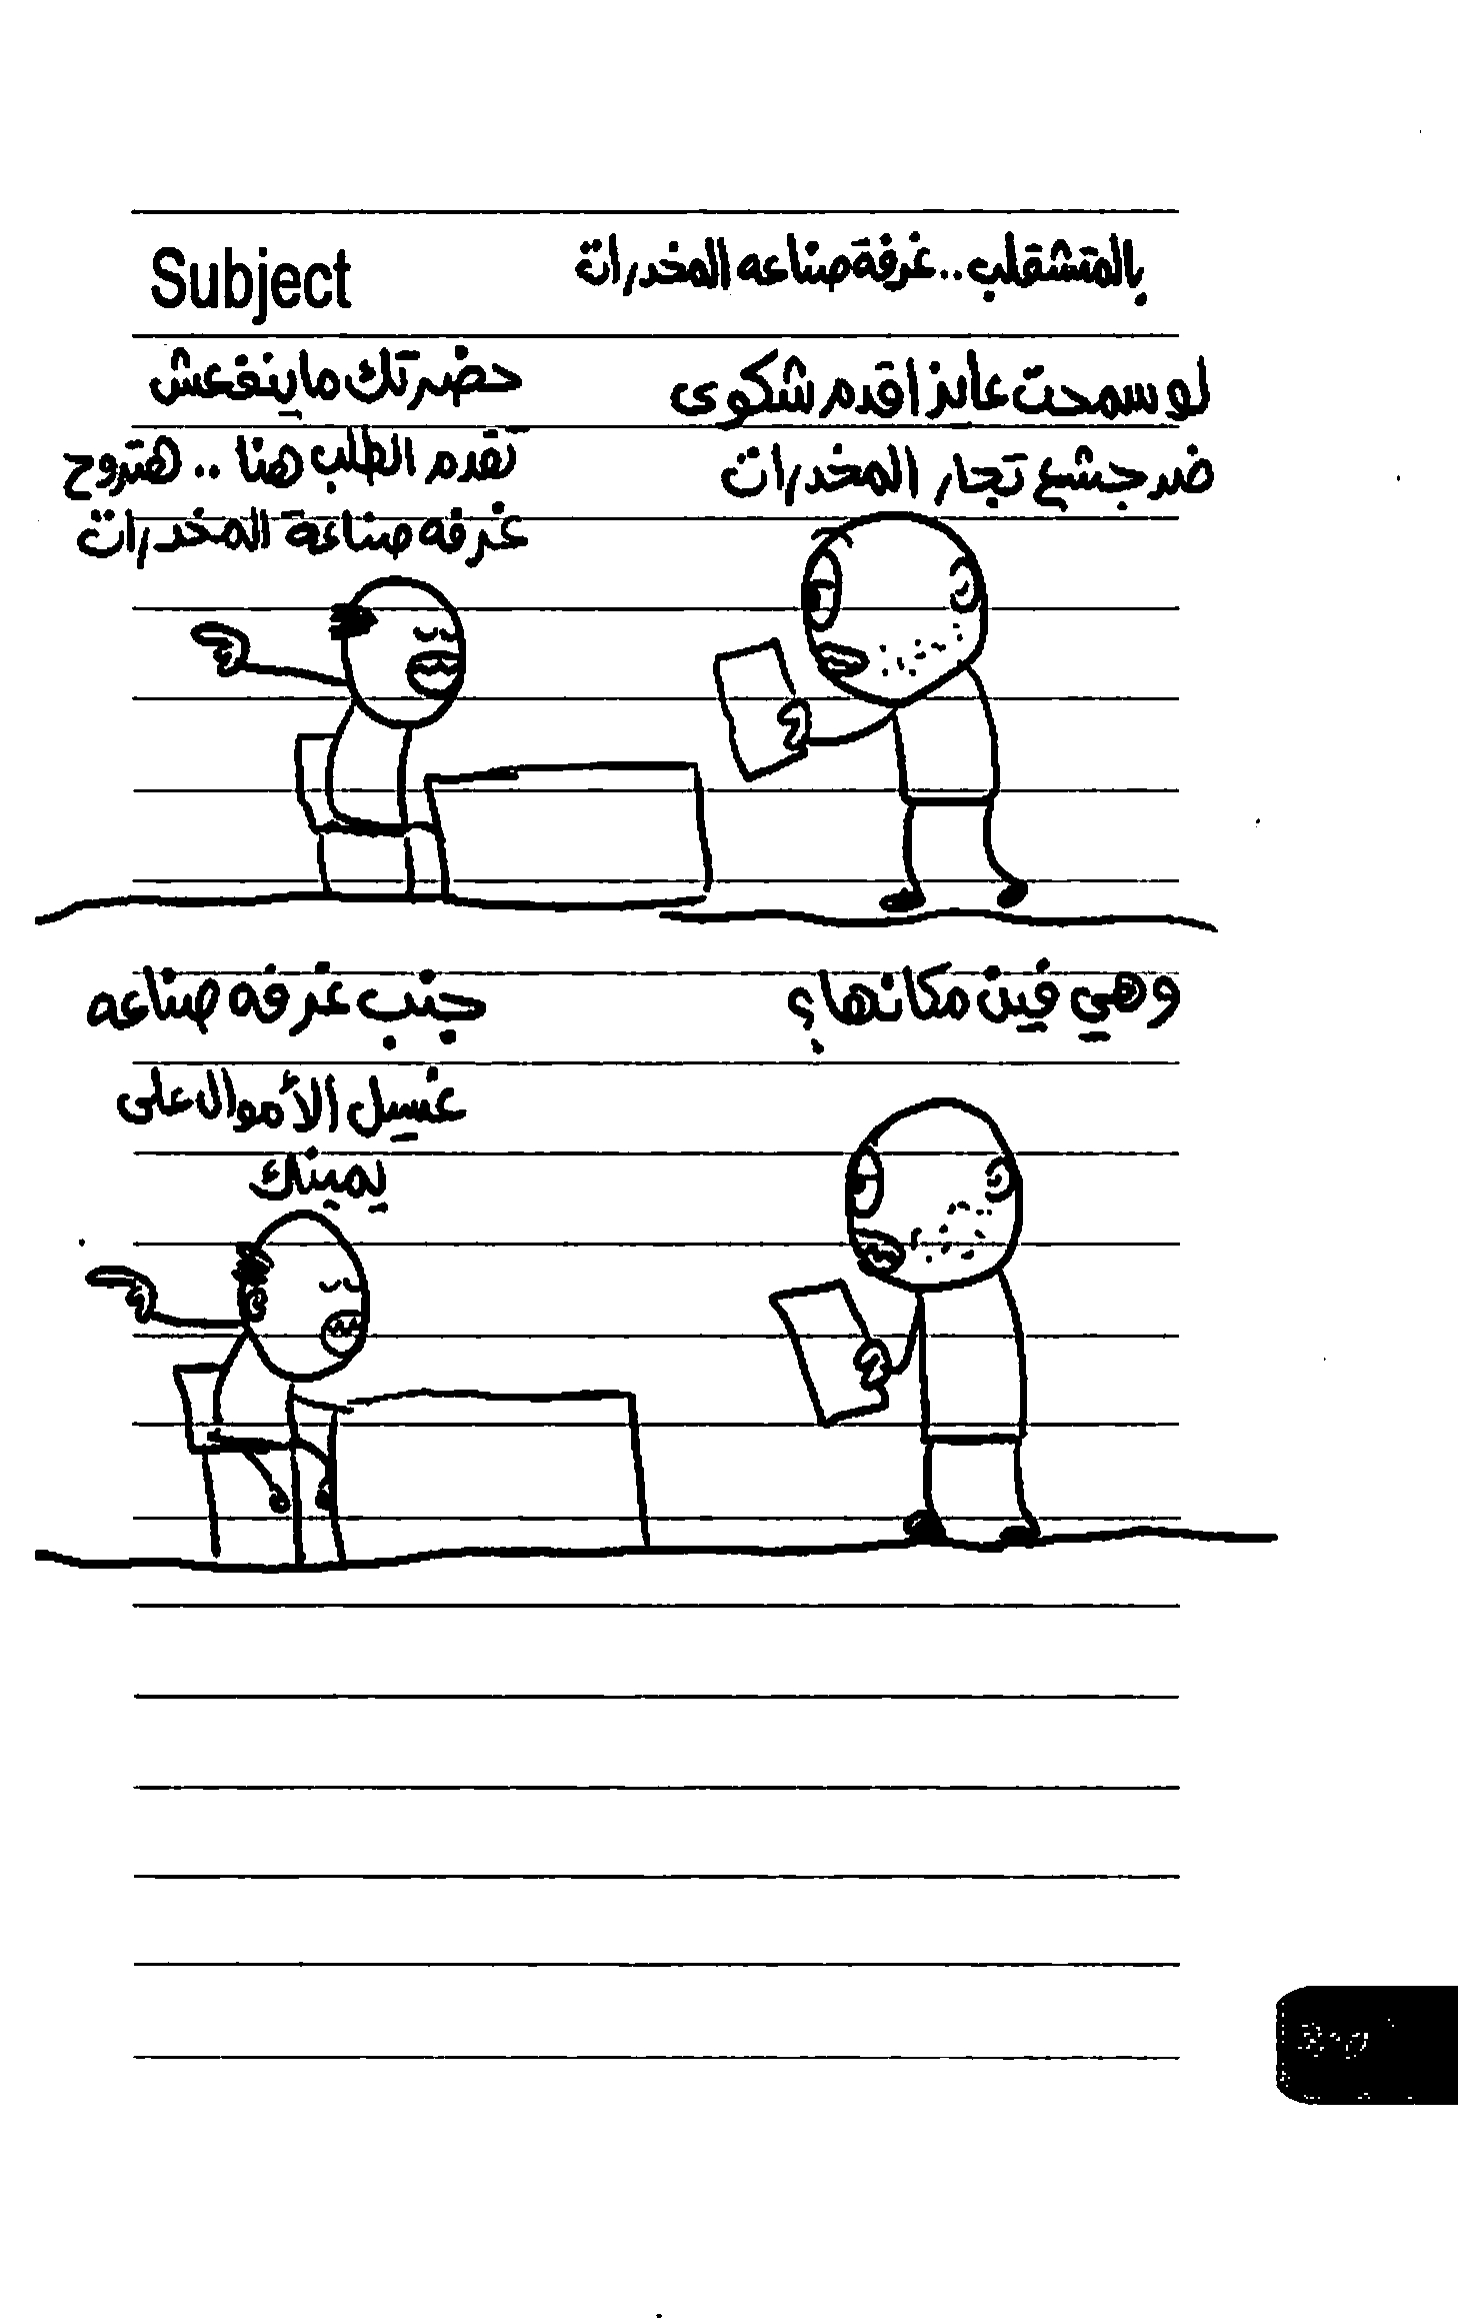 Subject
بالمتشقلب.. غرفة صناعه المخدرات
لو سمحت عايز اقدم شكوى
ضد جشع تجار المخدرات
حضرتك ما ينفعش
تقدم الطلب هنا .. هتروح
غرفه صناعة المخدرات
وهي فين مكانها؟
جنب غرفه صناعه
غسيل الأموال على
يمينك